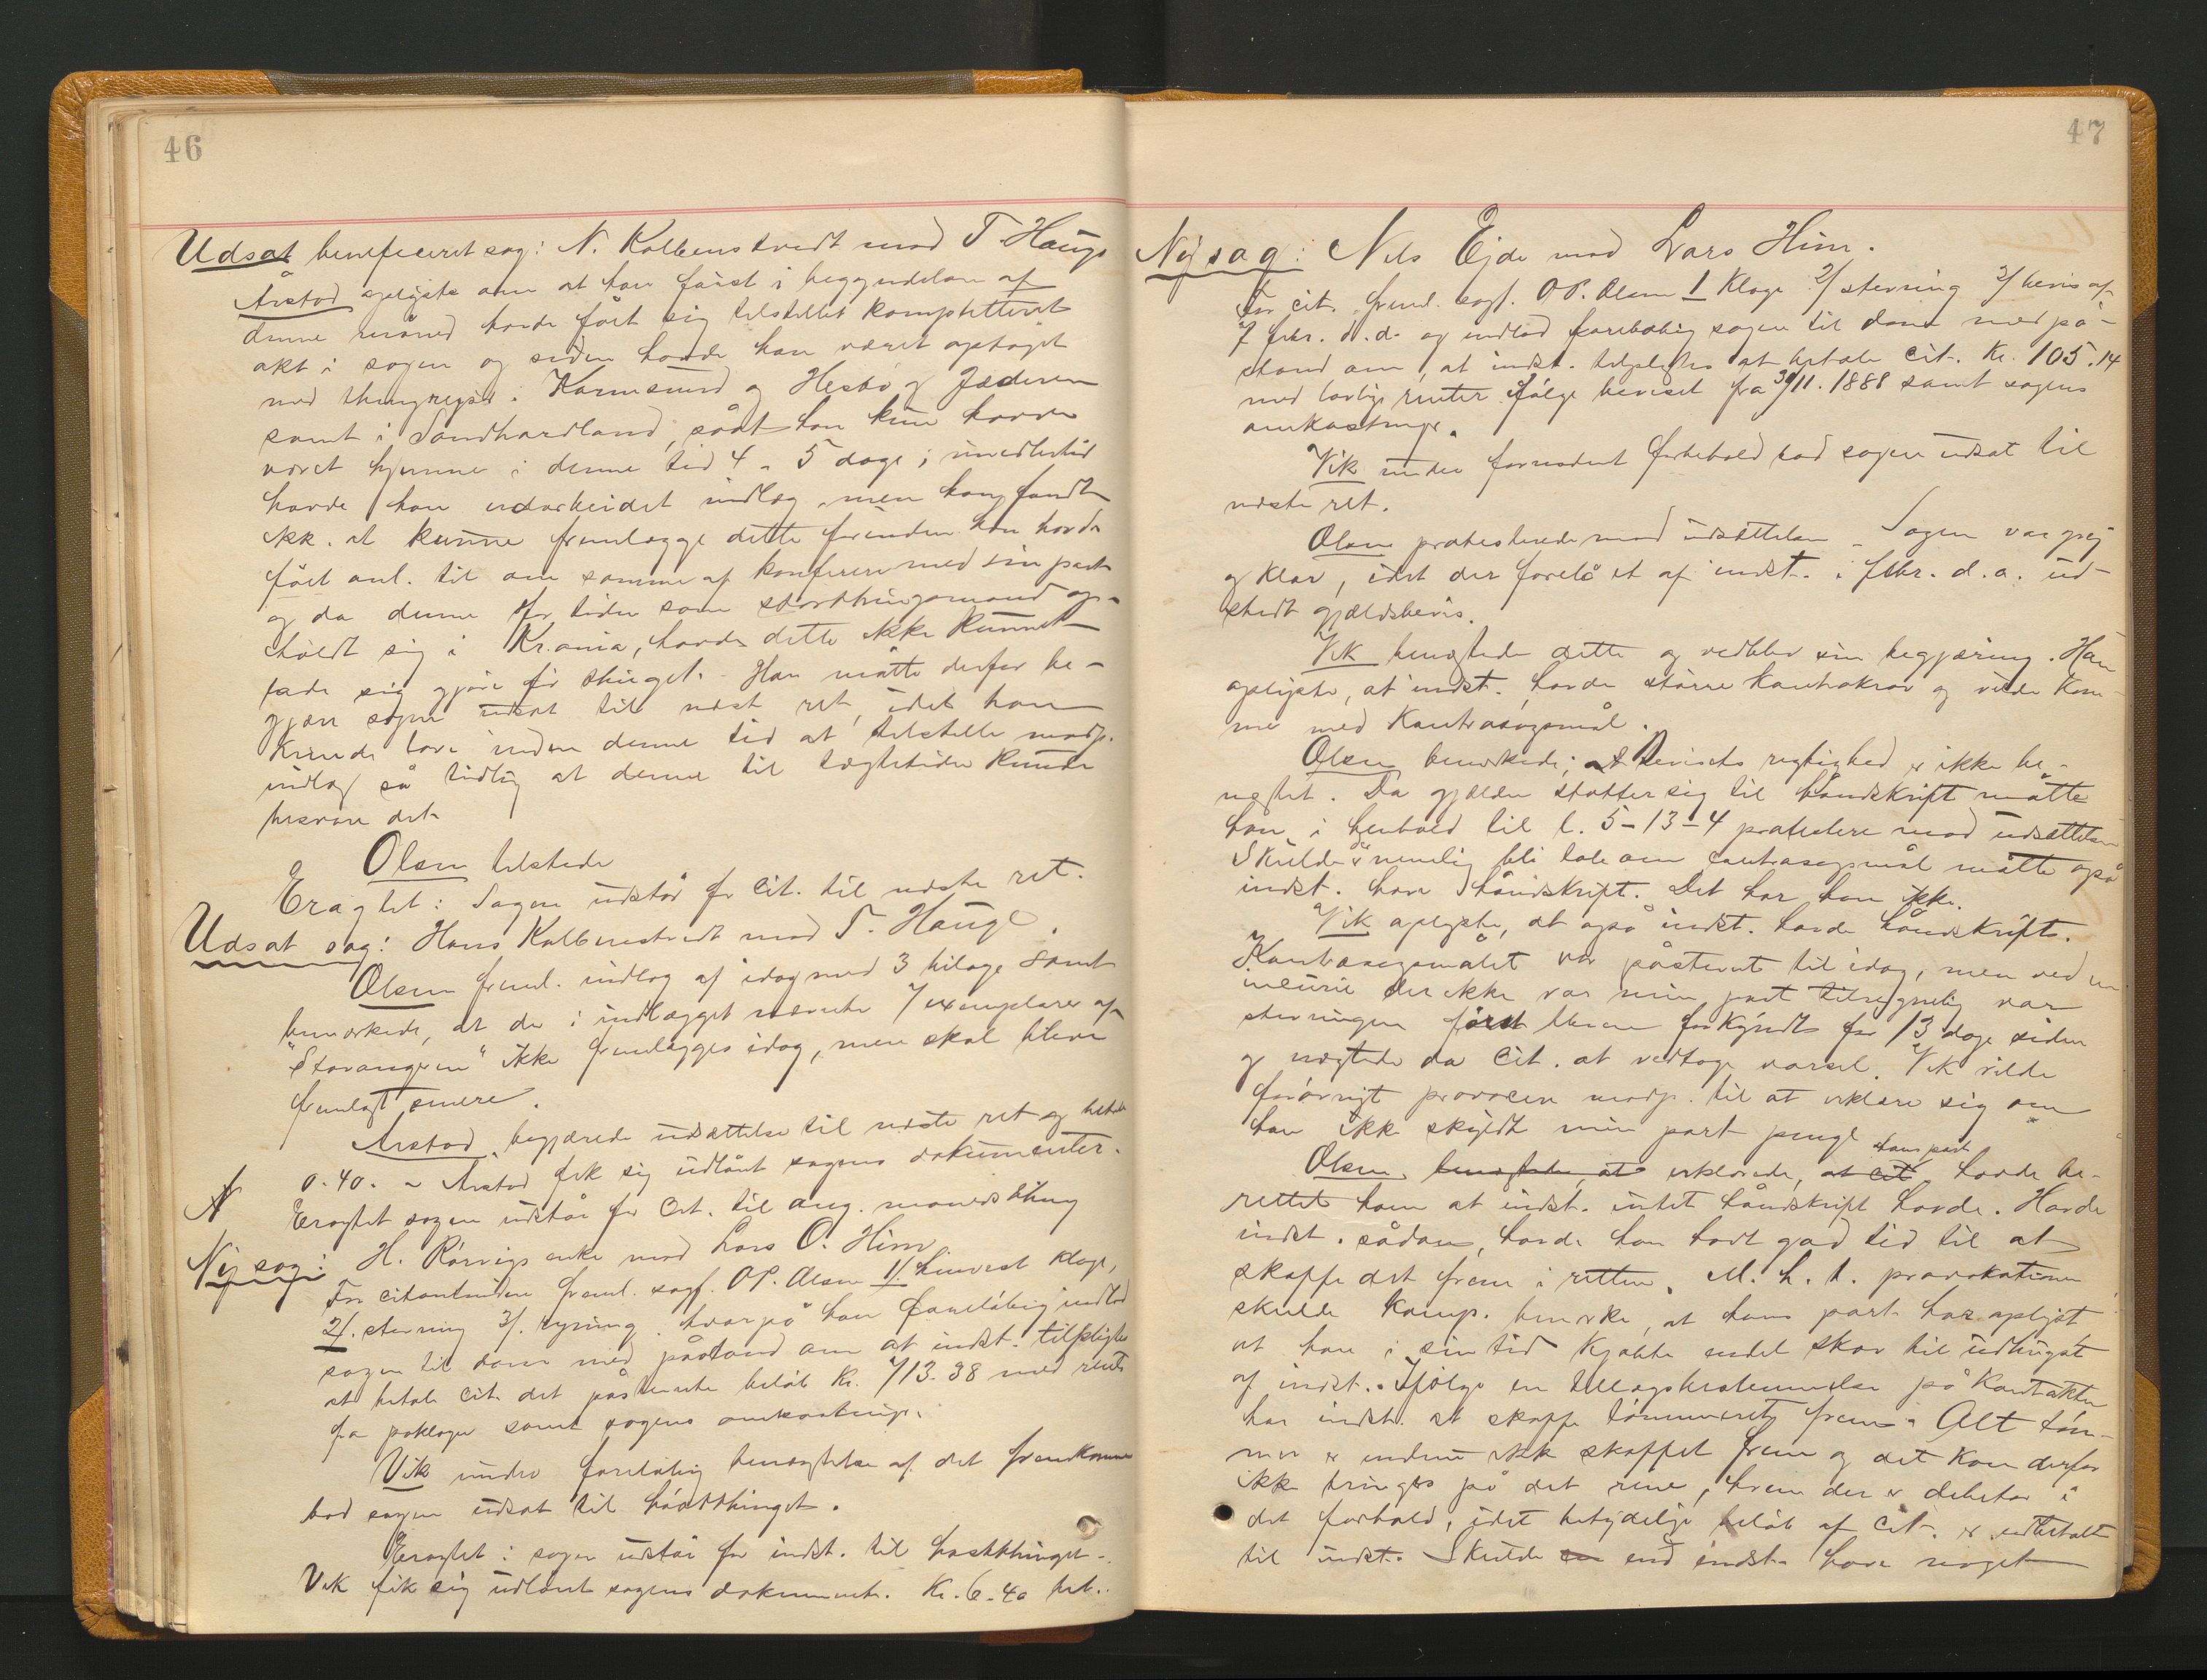 46
Udsat beneficeret sag: N. Kolbenstvedt mod T. Hauge
Årstad oplyste om at han først i begyndelsen af
denne måned havde fået sig tilstillet kompletteret
akt i sagen og siden havde han været optaget
med thingreiser i Karmsund og Hesbø og Jæderen
samt i Søndhordland, såat han kun havde
været hjemme i denne tid 4 - 5 dage; imidlertid
havde han udarbeidet indlæg, men han fandt
ikk. at kunne fremlægge dette forinden han havde
fået anl. til om samme at konferere med sin part
og da denne for tiden som storthingsmand op-
holdt sig i Kr.ania, havde dette ikke kunnet
lade sig gjøre før thinget. Han måtte derfor be-
gjære sagen udsat til næst ret, idet han
kunde love inden denne tid at tilstille modp.
indlæg så tidlig at denne til tægtetiden kunde
besvare det.
Olsen tilstede
Eragtet: Sagen udstår for cit. til næste ret.
Udsat sag: Hans Kolbenstvedt mod T. Hauge.
Olsen freml. indlæg af idag med 3 bilage samt
bemærkede, at de i indlægget nævnte 7 exemplarer af
"Stavangeren" ikke fremlægges idag, men skal blive
fremlagt senere.
Årstad begjærede udsættelse til næste ret og betalte
0.40. - Årstad fik sig udlånt sagens dokumenter.
Eragtet sagen udstår for Cit. til aug. månedsthing
Ny sag: H. Rørvigs enke mod Lars O. Him
For citantinden freml. sagf. O.P. Olsen 1/. henvist klage,
2/. stevning 3/. regning hvorpå han foreløbig indlod
sagen til dom med påstand om at indst. tilpligtes
at betale cit. det påstevnte beløb Kr. 713.38 med rente
fra paklage samt sagens omkostninger.
Vik under foreløbig benægtelse af det fremkomne
bad sagen udsat til høstthinget.
Eragtet: sagen udstår for indst. til høstthinget.
Vik fik sig udlånt sagens dokumenter. Kr. 6.40 bet..
47
Ny sag: Nils Ejde mod Lars Him.
For cit. freml. sagf. O.P. Olsen 1 Klage 2/ stevning 3/ bevis af
7 febr. d.a. og indlod foreløbig sagen til dom med på-
stand om, at indst. tilpligtes at betale cit. Kr. 105.14
med lovlige renter ifølge beviset fra 30/11. 1888 samt sagens
omkostninger.
Vik under fornødent forbehold bad sagen udsat til
næste ret.
Olsen protesterede mod udsættelsen - Sagen var grei
og klar, idet der forelå et af indst. i febr. d.a. ud-
stedt gjældsbevis.
Vik benægtede dette og vedblev sin begjæring. Han
oplyste, at indst. havde større kontrakrav og vilde kom-
me med kontrasøgsmål.
Olsen bemærkede; at bevisets rigtighed er ikke be-
nægtet. Da gjælden støtter sig til håndskrift måtte
han i henhold til l. 5-13-4 protestere mod udsættelsen
Skulde der nemlig bli tale om contrasøgsmål måtte også
indst. have håndskrift. Det har han ikke.
Vik oplyste, at også indst. havde håndskrift.
Kontrasøgsmålet var påstevnt til idag, men ved en
incurie der ikke var min part tilregnelig var
stevningen først bleven forkyndt for 13 dage siden
og nægtede da cit. at vedtage varsel. Vik vilde
forøvrigt provocere modp. til at erklære sig om
han ikke skyldte min part penge
Olsen benægtede, at erklærede, at cit hans part havde be-
rettet ham at indst. intet håndskrift havde. Havde
indst. sådan, havde han havt god tid til at
skaffe det frem i retten. M. h. t. provokationen
skulde komp. bemærke, at hans part har oplyst
at han i sin tid kjøbte endel skov til udhugst
af indst. Ifølge en tillægsbestemmelse på kontrakten
har indst. at skaffe tømmeret frem. Alt tøm-
mer er endnu ikk skaffet frem og det kan derfor
ikk bringes på det rene, hvem der er debetor i
det forhold, idet betydelige beløb af cit. er udbetalt
til indst. Skulde end indst. have noget